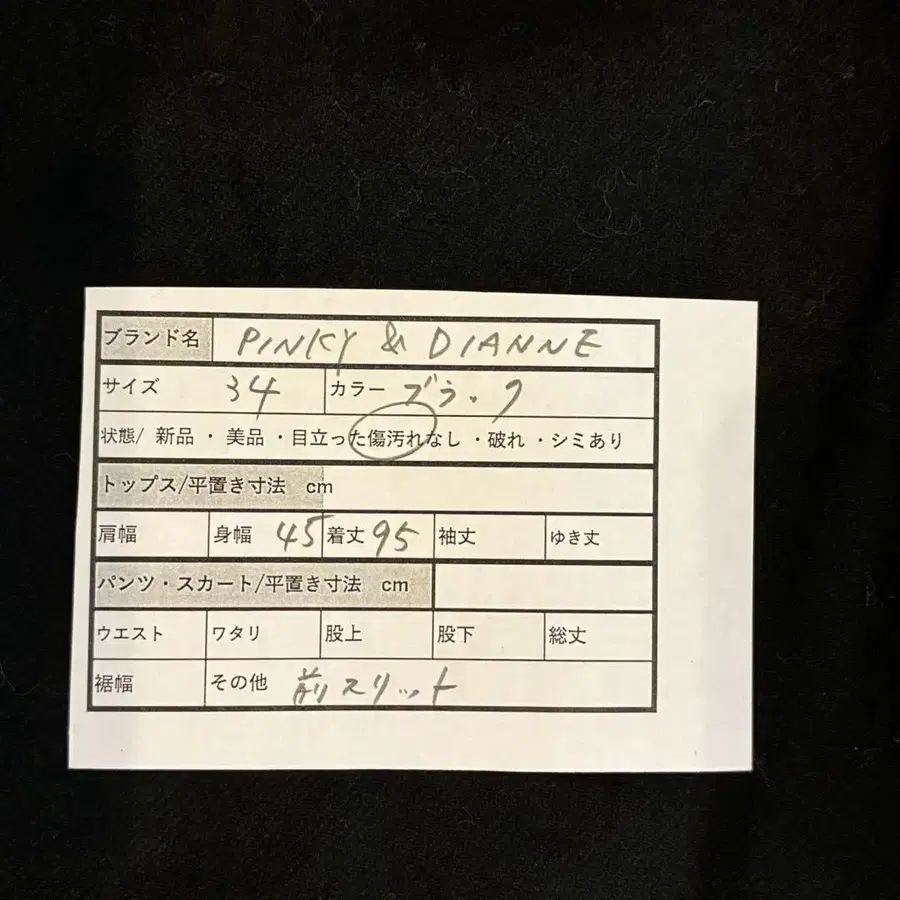 ブランド名 PINKY & DIANNE
サイズ 34 カラー ブラック
状態/ 新品 ・ 美品 ・目立った傷汚れなし ・破れ ・シミあり
トップス/平置き寸法 cm
肩幅 身幅 45 着丈 95 袖丈 ゆき丈
パンツ・スカート/平置き寸法 cm
ウエスト ワタリ 股上 股下 総丈
裾幅 その他 前スリット